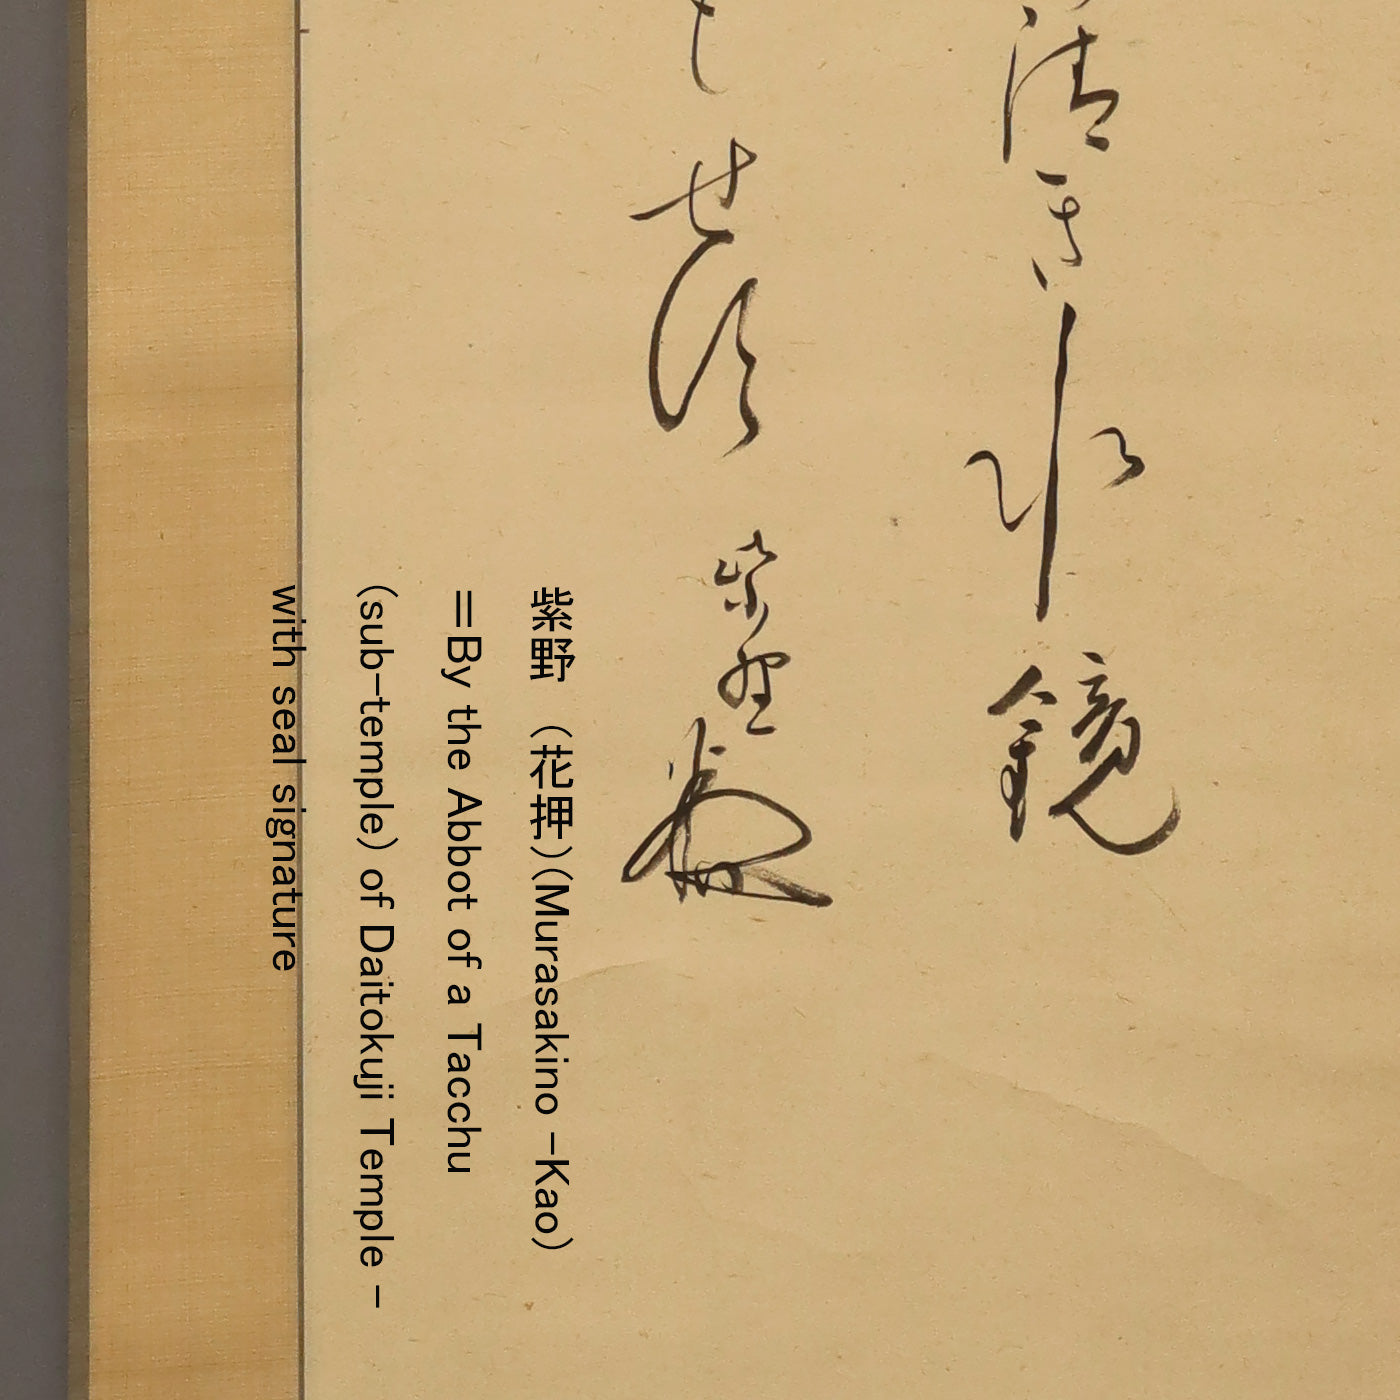 清き水鏡
もせす 紫野
紫野 (花押)(Murasakino -Kao)
=By the Abbot of a Tacchu
(sub-temple) of Daitokuji Temple -
with seal signature